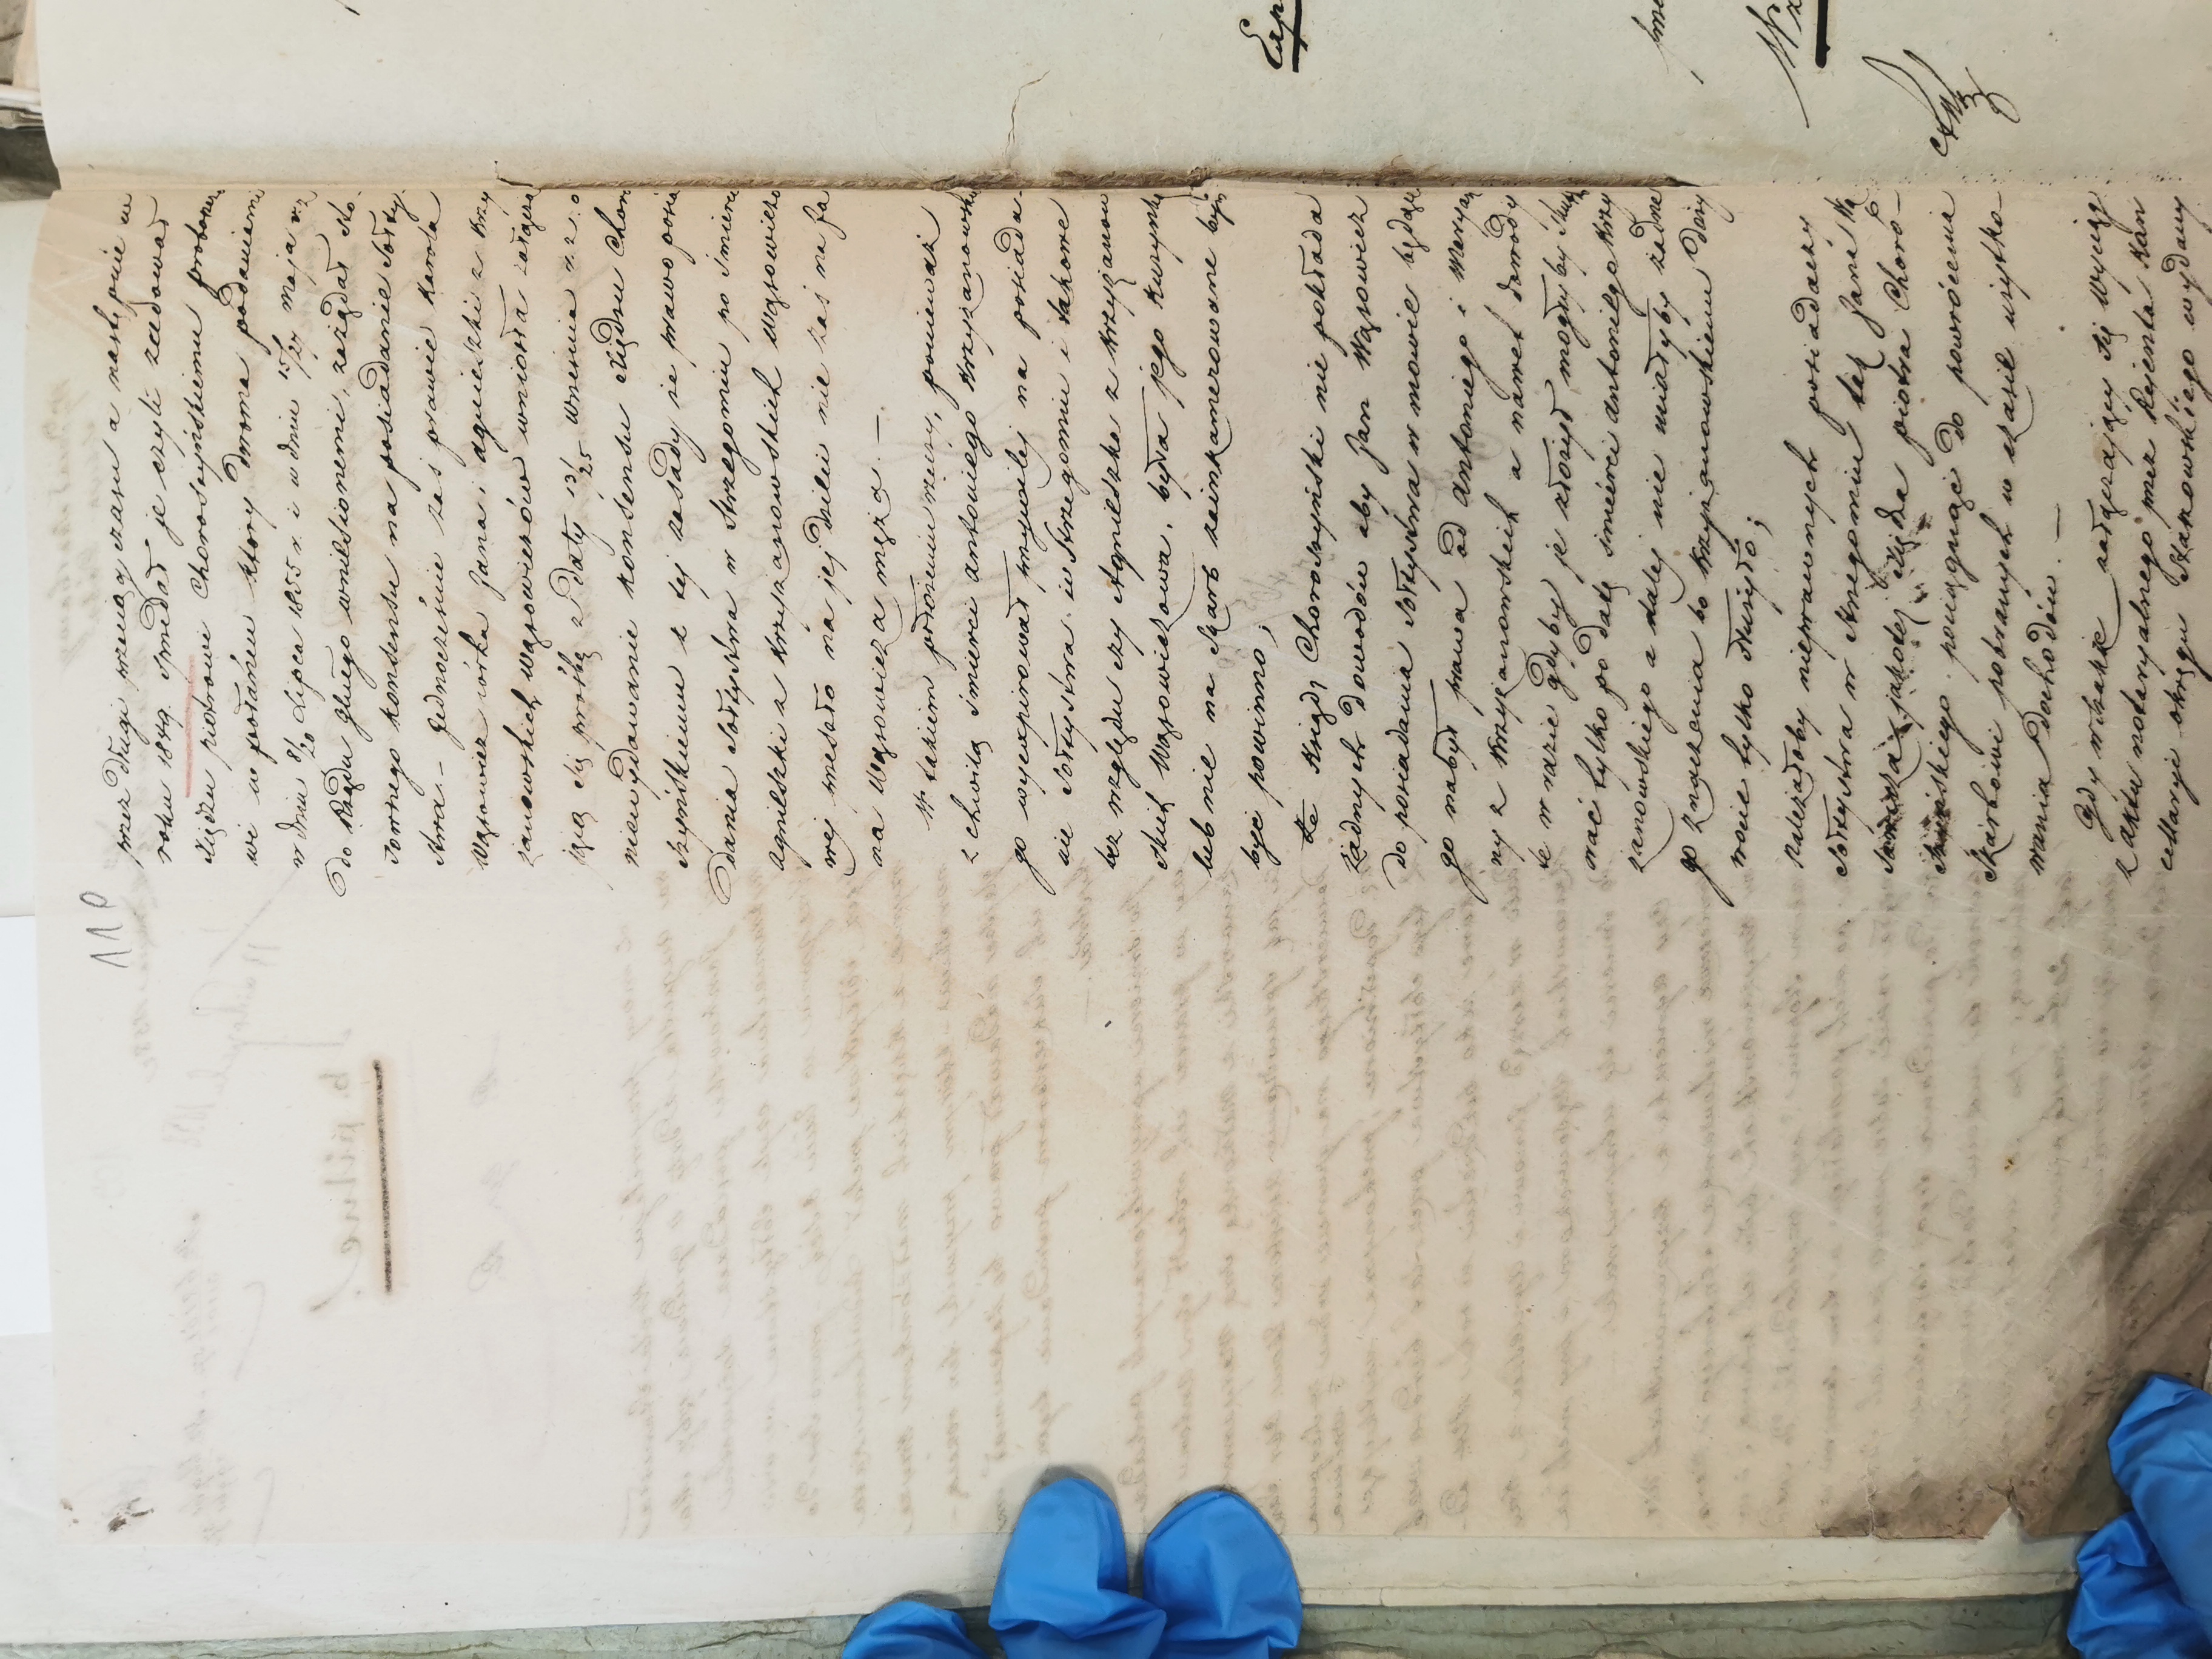 110
przez długi przeciąg czasu a następnie w
roku 1849. sprzedał je czyli zcedował
Xiędzu piotrowi Choroszyńskiemu probosz
wi w potarzeń który dwoma podaniami
w dniu 8/20 Lipca 1855 r. i w dniu 15/27 Maja rz
do Rządu głłnego wnilsionemi, zażądał sto-
sownego konsensu na posiadanie sołty-
stwa. - Jednocześnie zaś prawie Karola
Wąsowicz córka Jana i agnieszki z Krzy
żanowskich Wąsowiczów wniosła załącza
jącą się prośbą z daty 13/25 Września r. z. o
niewydawanie konsensu Xiędzu Choro
szyńskiemu z tej zasady że prawo posia
dania sołtystwa w Strzegomiu po śmierci
Agnieszki z Krzyżanowskich Wąsowiczo
wej weszło na jej dzieci nie zaś na Ja
na Wąsowicza męża. —
W takim położeniu rzeczy, ponieważ
z chwilą śmierci antoniego Krzyżanowskie
go wyexpirował przywilej na posiada-
nie sołtystwa w Strzegomiu i takowe
bez względu czy Agnieszka z Krzyżanow
skich Wąsowiczowa, była jego kuzynką
lub nie na skarb zainkamerowane być
być powinno;
że Xiądz Chorosyński nie pokłada
żadnych dowodów aby Jan Wąsowicz
do posiadania sołtystwa w mowie będące
go nabył prawa od Antoniego i Maryan
ny z Krzyżanowskich a nawet dowody
te w razie gdyby je złożył mogły by służ
wać tylko po datę śmierci antoniego Krzy
żanowskiego a dalej nie miały by żadne
go znaczenia bo Krzyżanowskiemu doży
wocie tylko służyło;
należałoby nieprawnych posiadaczy
sołtystwa w Strzegomiu też Jana
Xiędza piotra Choro-
szyńskiego pociągnąć do powrócenia
Skarbowi pobranych w czasie użytko-
wania dochodów. —
Gdy wszakże załączający się wyciąg
z aktu notaryalnego przez Rejenta Kan
cellaryi okręgu Staszowskiego wydany
Exp